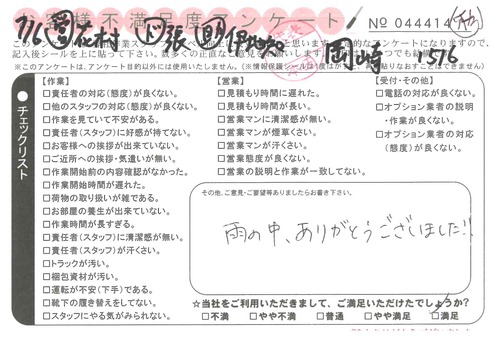 お客様不満足度アンケート!
No 044414
7/6 花村 張 伊地知 岡崎 1576
※このアンケートは、アンケート目的以外には使用いたしません。
チェックリスト
【作業】
□責任者の対応(態度)が良くない。
□他のスタッフの対応(態度)が良くない。
□作業を見ていて不安がある。
□責任者(スタッフ)に好感が持てない。
□お客様への挨拶が出来ていない。
□ご近所への挨拶・気遣いが無い。
□作業開始前の内容確認がなかった。
□作業開始時間が遅れた。
□荷物の取り扱いが雑である。
□お部屋の養生が出来ていない。
□作業時間が長すぎる。
□責任者(スタッフ)に清潔感が無い。
□責任者(スタッフ)が汗くさい。
□トラックが汚い。
□梱包資材が汚い。
□運転が不安(下手)である。
□靴下の履き替えをしてない。
□スタッフにやる気がみられない。
【営業】
□見積もり時間に遅れた。
□見積もり時間が長い。
□営業マンに清潔感が無い。
□営業マンが煙草くさい。
□営業マンが汗くさい。
□営業態度が良くない。
□営業の説明と作業が一致してない。
【受付・その他】
□電話の対応が良くない。
□オプション業者の説明
・作業が良くない。
□オプション業者の対応
(態度)が良くない。
その他、ご意見・ご要望等ありましたらお書き下さい。
雨の中、ありがとうございました!!
☆当社をご利用いただきまして、ご満足いただけたでしょうか?
□不満 □やや不満 □普通 □やや満足 □満足